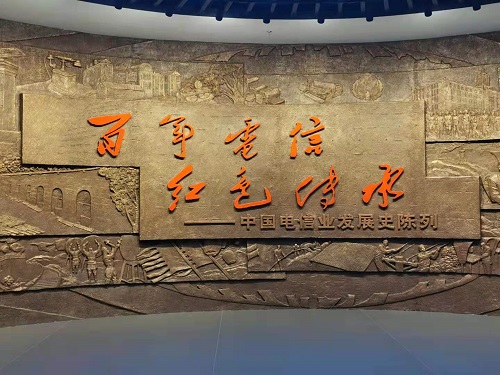 百年電信
红色传承
——中国电信业发展史陈列